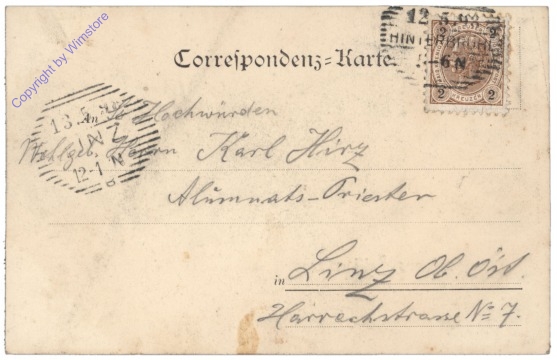 Copyright by Wimstore
12.5.98
HINTERBRÜHL
6 N
2 2
2 KREUZER 2
Correspondenz=Karte.
13.5.
LINZ
12-1 N
An Sr Hochwürden
Wohlgeb. Herrn Karl Hirz
Alumnats-Priester
in Linz Ob. Öst.
Harrachstrasse No 7.